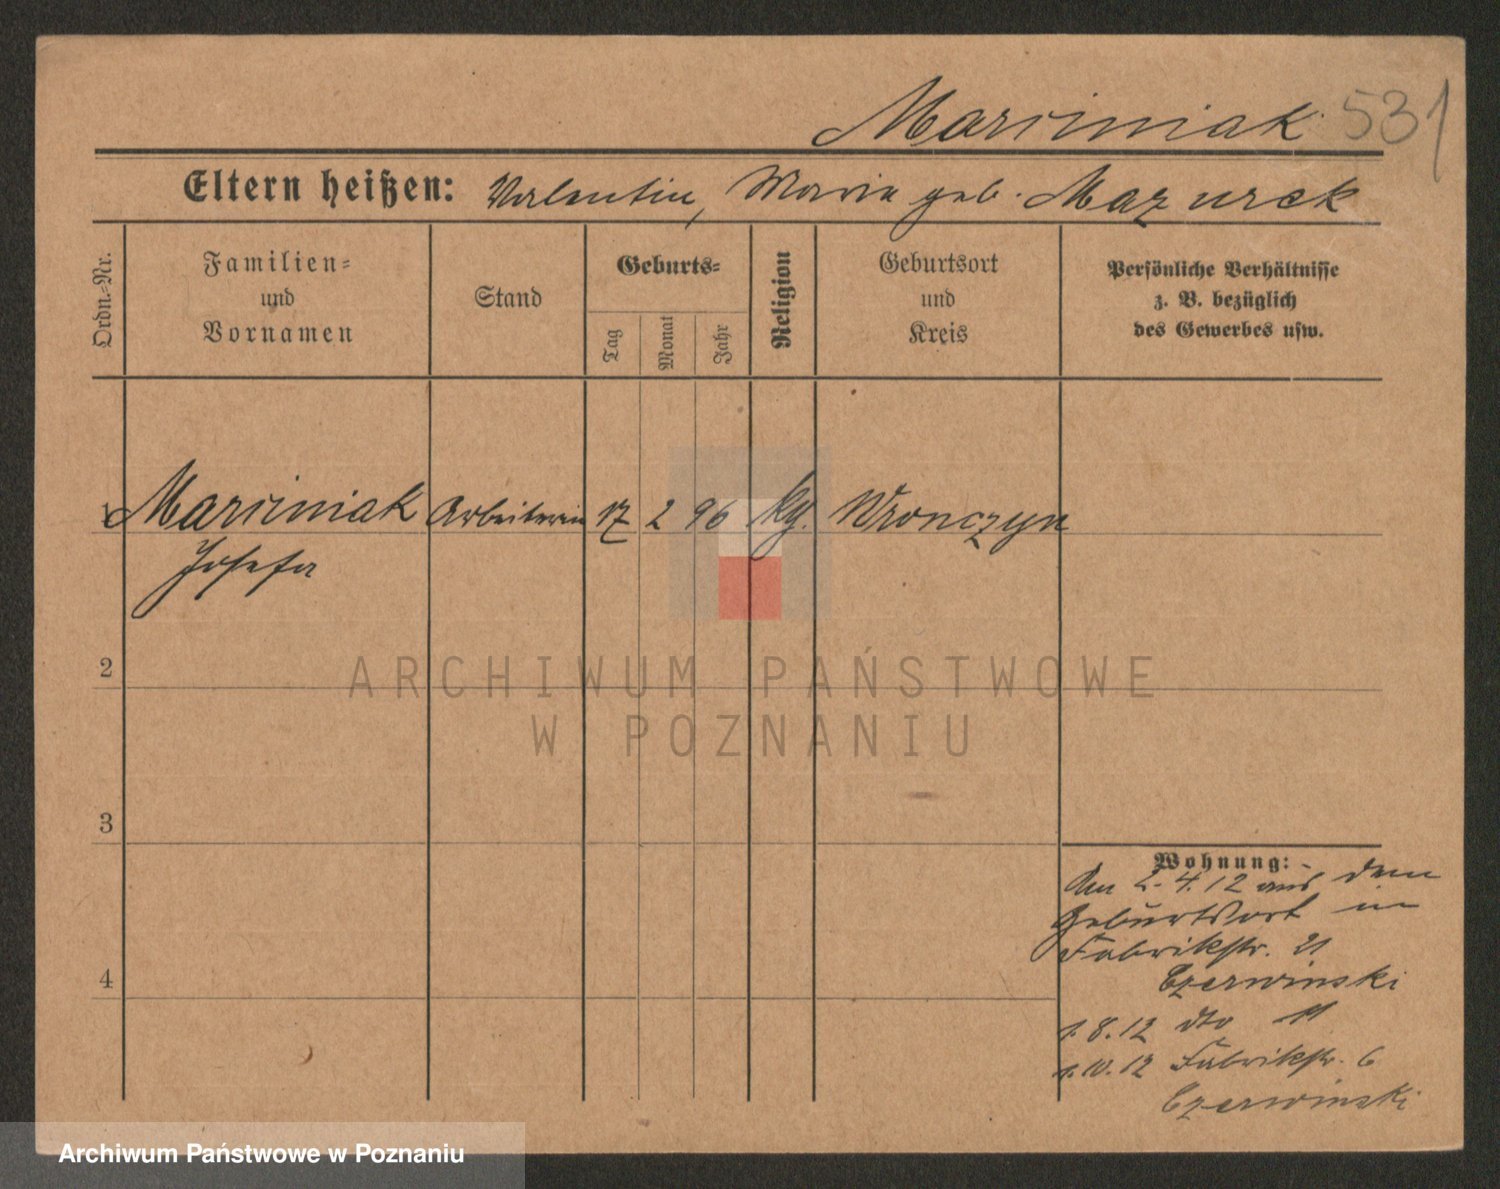 Marciniak 531
Eltern heißen: Valentin, Maria geb. Mazurek
Ordn.-Nr.
Familien-
und
Vornamen
Stand
Geburts-
Tag
Monat
Jahr
Religion
Geburtsort
und
Kreis
Persönliche Verhältnisse
z. B. bezüglich
des Gewerbes usw.
1 Marciniak Arbeiterin 17 2 96 kg. Wronczyn
Josefa
2
3
4
Wohnung:
Am 2.4.12 aus dem
Geburtsort in
Fabrikstr. 21
Czerwinski
1.8.12 dto 11
1.10.12 Fabrikstr. 6
Czerwinski
ARCHIWUM PAŃSTWOWE
W POZNANIU
Archiwum Państwowe w Poznaniu